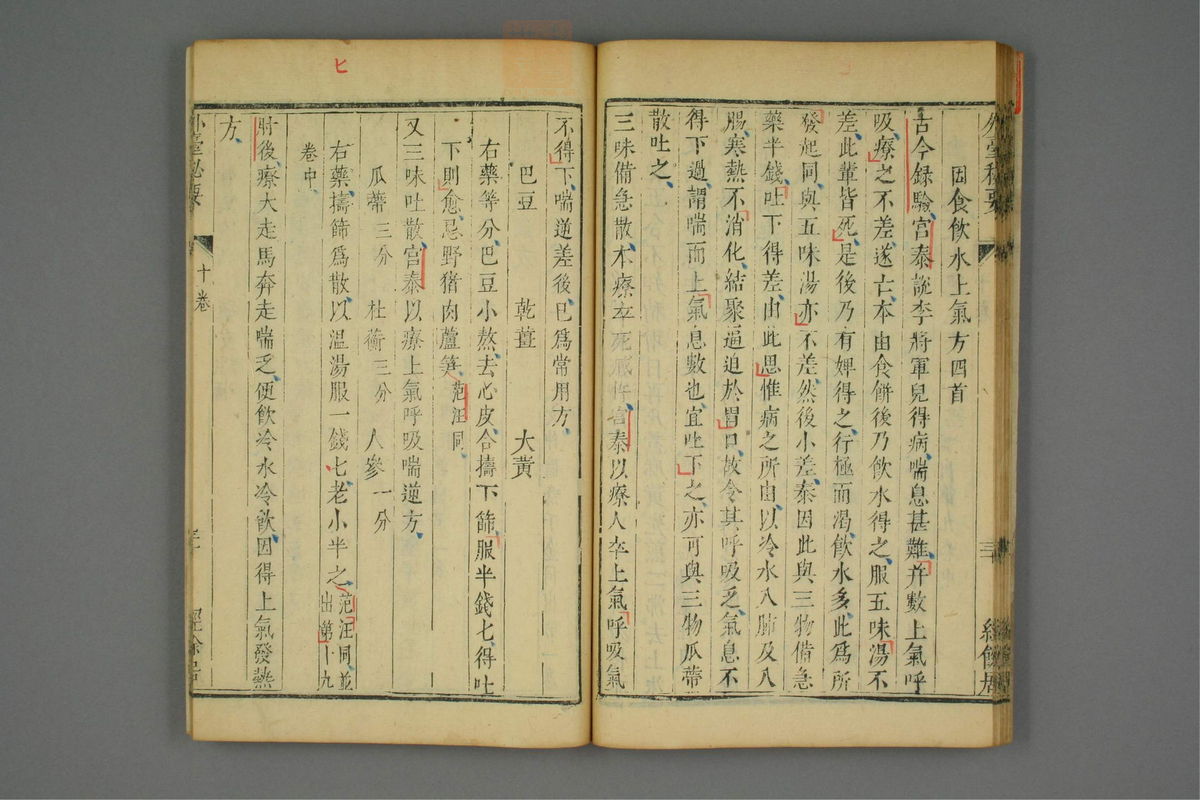 因食飲水上氣方四首
古今録驗宫泰説李將軍兒得病喘息甚難并數上氣呼
吸療之不差遂亡本由食餅後乃飲水得之服五味湯不
差此輩皆死是後乃有婢得之行極而渴飲水多此爲所
發起同與五味湯亦不差然後小差泰因此與三物備急
藥半錢吐下得差由此思惟病之所由以冷水入肺及入
腸寒熱不消化結聚逼迫於胃口故令其呼吸乏氣息不
得下過謂喘而上氣息數也宜吐下之亦可與三物瓜蒂
散吐之
三味備急散本療卒死感忤宫泰以療人卒上氣呼吸氣
不得下喘逆差後已爲常用方
巴豆 乾薑 大黄
右藥等分巴豆小熬去心皮合擣下篩服半錢匕得吐
下則愈忌野猪肉蘆笋范汪同
又三味吐散宫泰以療上氣呼吸喘逆方
瓜蒂三分 杜蘅三分 人參一分
右藥擣篩爲散以温湯服一錢匕老小半之范汪同並出第十九
卷中
肘後療大走馬奔走喘乏便飲冷水冷飲因得上氣發熱
方
外臺秘要 十卷